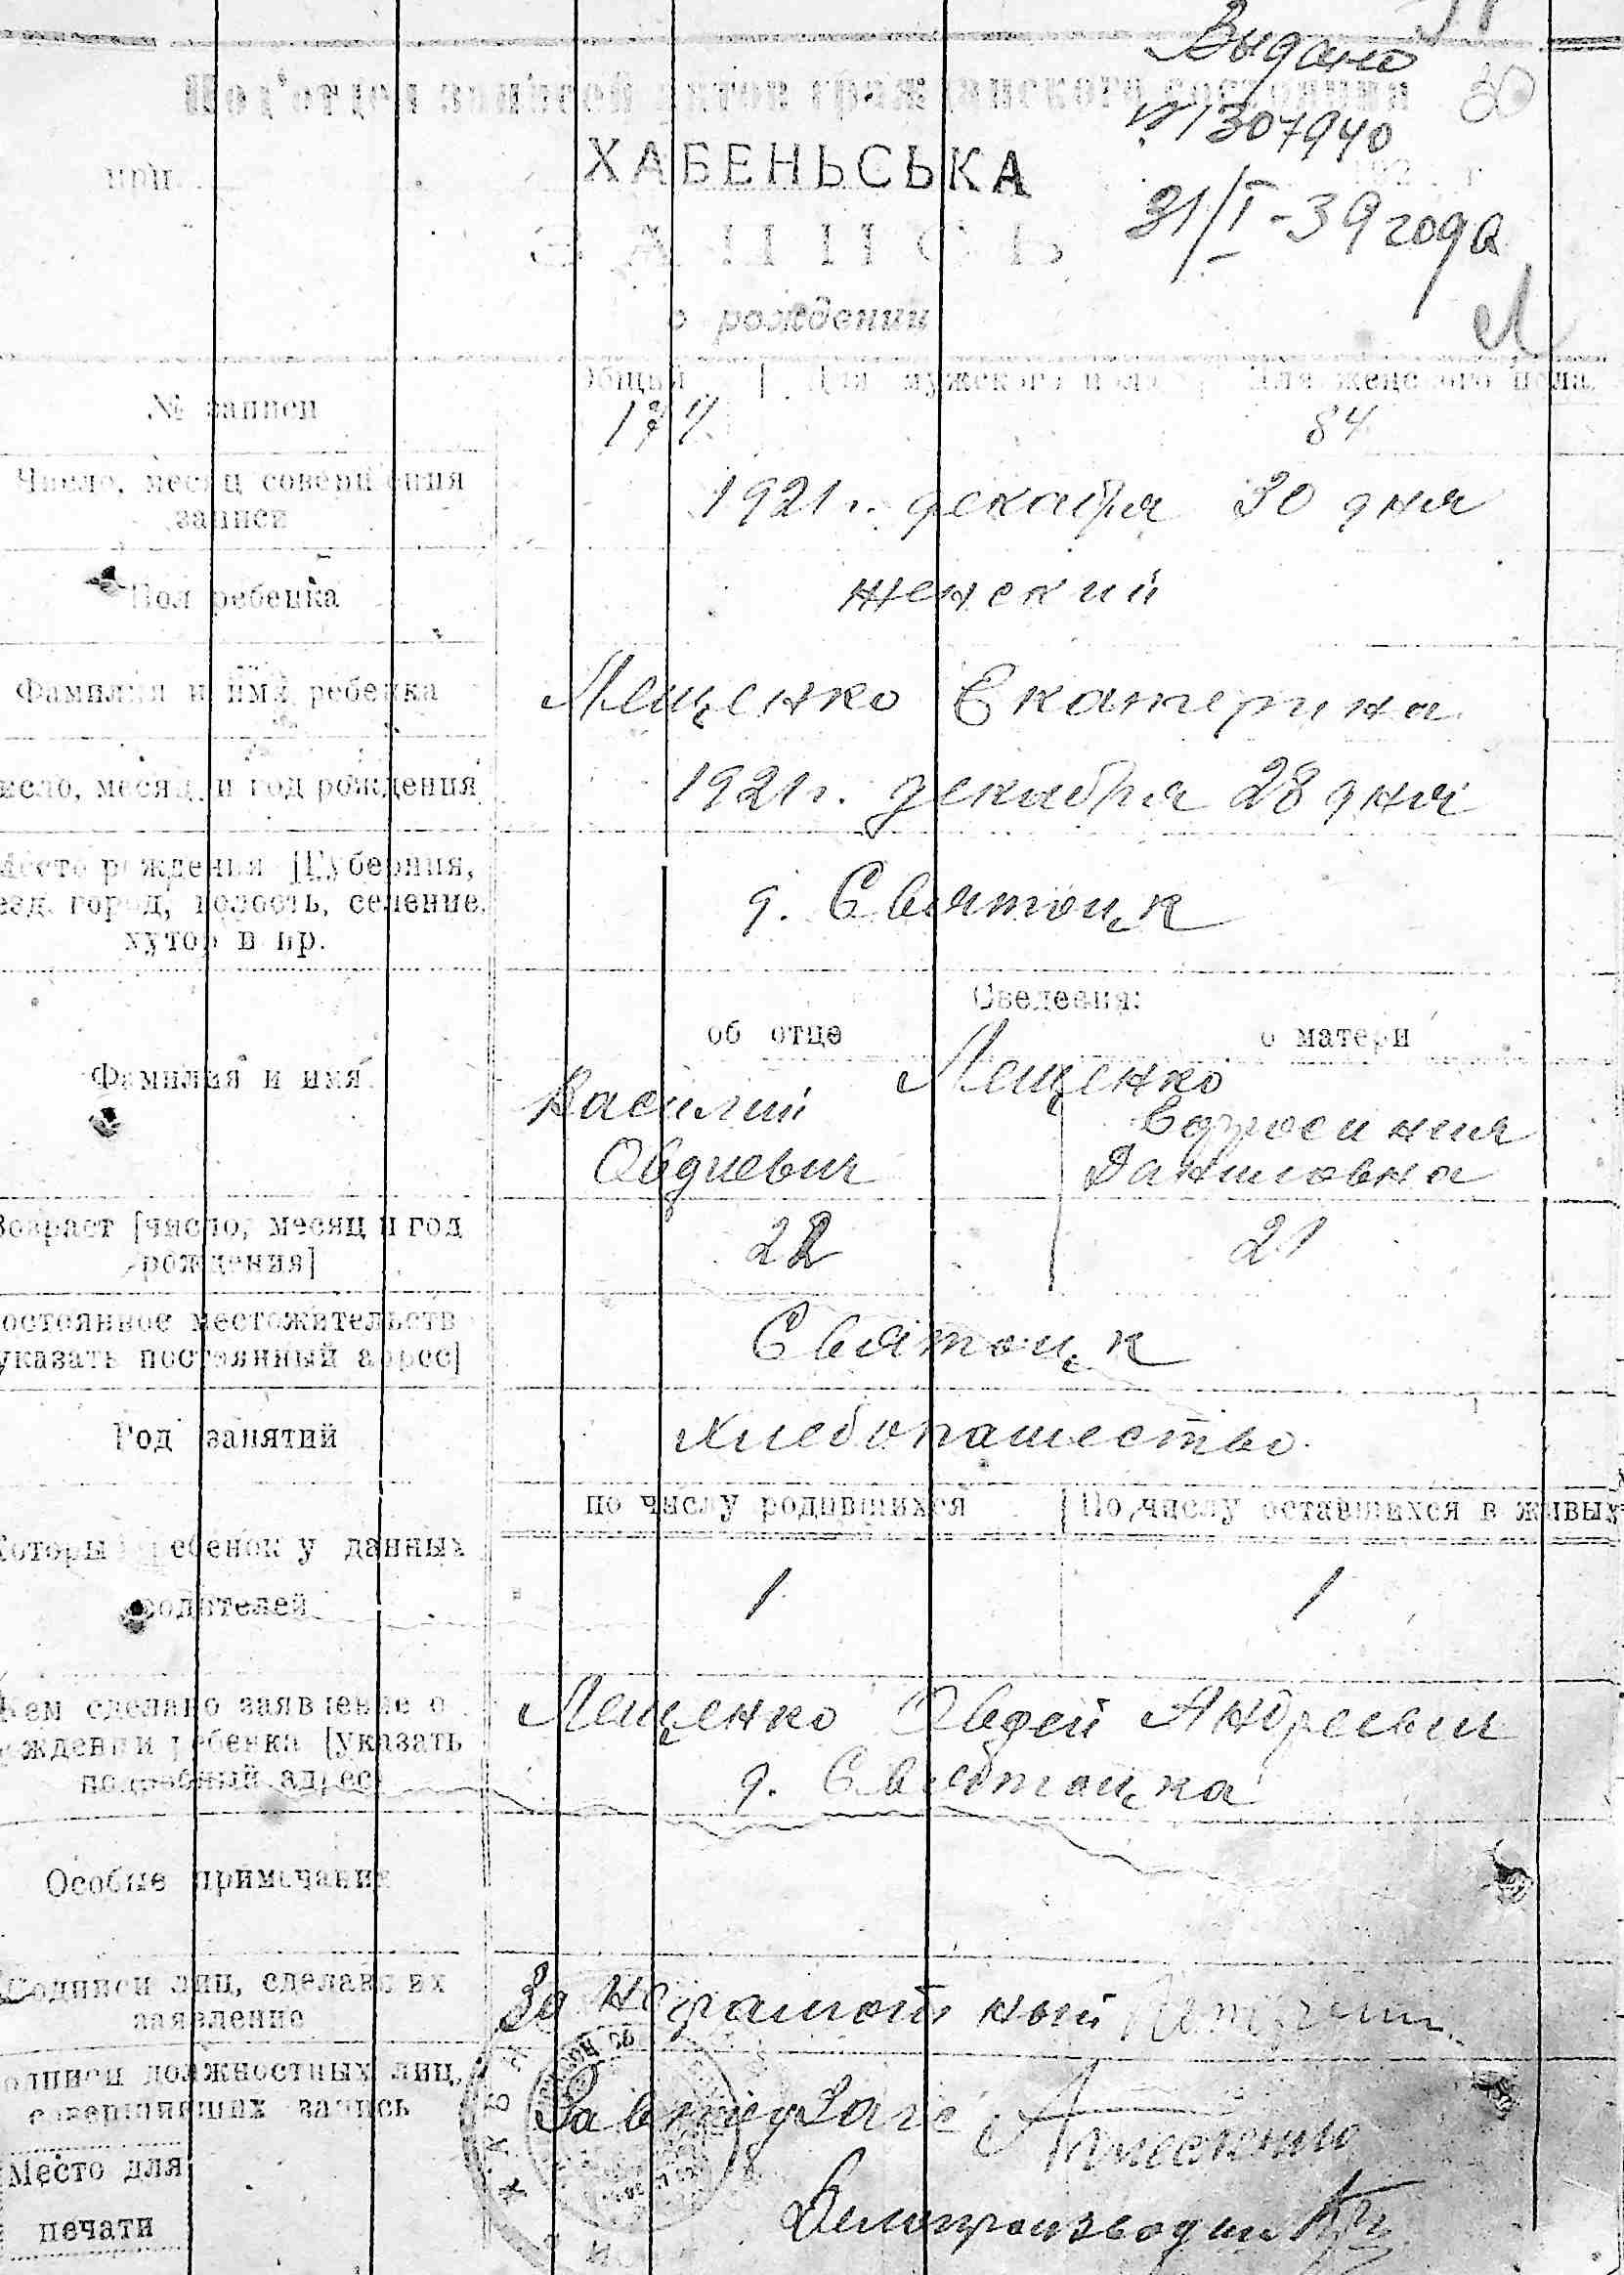 Выдано
№1307940
при
ХАБЕНЬСЬКА
31/I-39 года
ЗАПИСЬ
о рождении
№ записи
Общий Для мужского пола Для женского пола
84
Число, месяц совершения
записи
1921 г. декабря 30 дня
Пол ребенка
женский
Фамилия и имя ребенка
Лещенко Екатерина
число, месяц и год рождения
1921 г. декабря 28 дня
Место рождения [Губерния,
уезд, город, волость, селение,
хутор в пр.
д. Святоцк
Сведения:
об отце о матери
Фамилия и имя
Лещенко
Василий
Овдиевич
Ефросиния
Даниловна
Возраст [число, месяц и год
рождения]
22 21
Постоянное местожительств
указать постоянный адрес]
Святоцк
Род занятий
хлебопашество.
по числу родившихся По числу оставшихся в живых
Который ребенок у данных
родителей
1 1
Кем сделано заявление о
рождении ребенка [указать
подробный адрес]
Лещенко Овдей Андреевич
д. Святоцка
Особые примечания
Подписи лиц, сделавших
заявление
За неграмотный
Подписи должностных лиц,
совершивших запись
Место для
печати
Делопроизводит